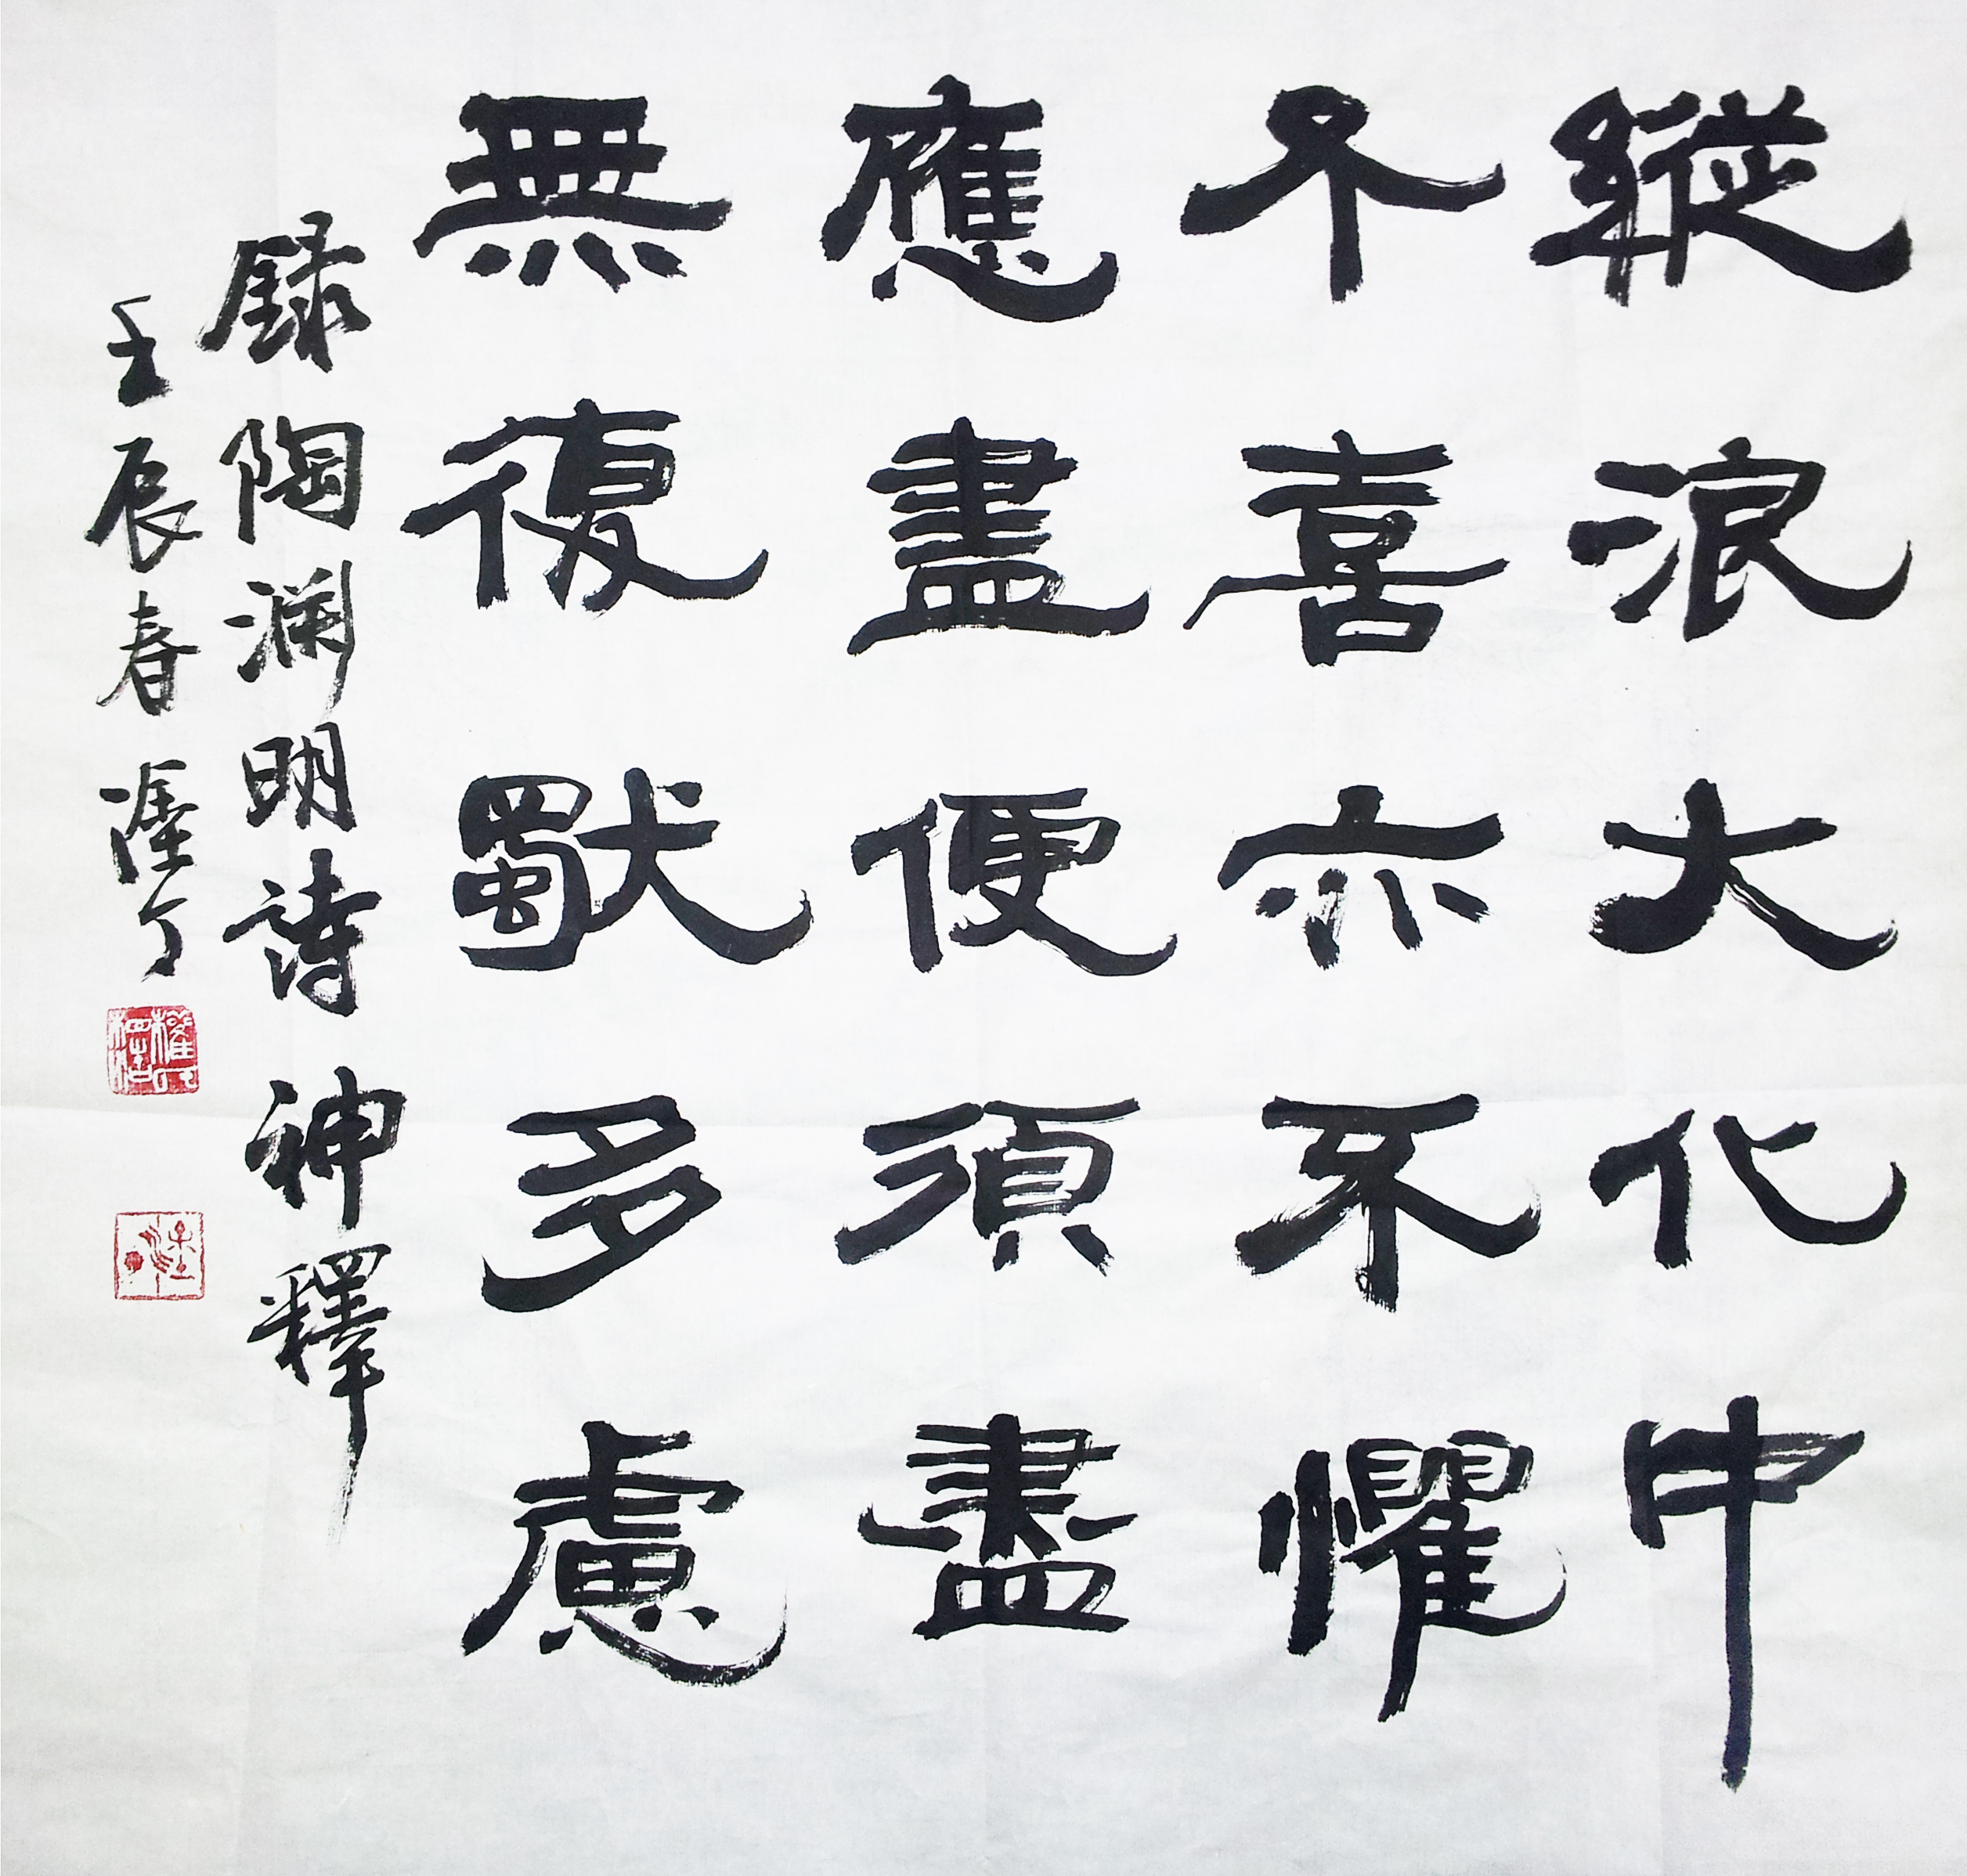 縱浪大化中
不喜亦不懼
應盡便須盡
無復獨多慮
録陶淵明詩 神釋
壬辰春